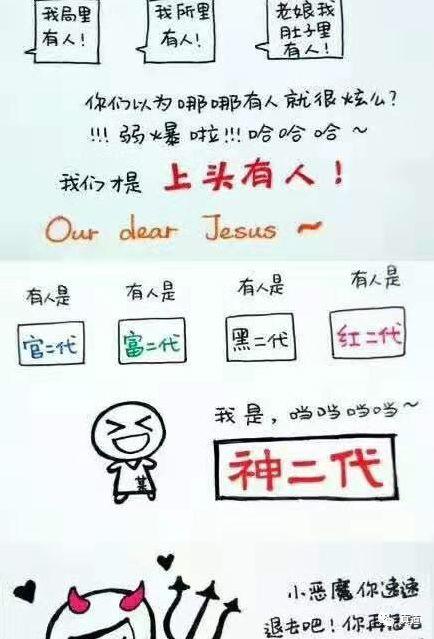 我局里
有人！
我所里
有人！
老娘我
肚子里
有人！
你们以为哪哪有人就很炫么？
!!! 弱爆啦!!! 哈哈哈～
我们才是 上头有人！
Our dear Jesus ～
有人是
官二代
有人是
富二代
有人是
黑二代
有人是
红二代
我是，当当当当～
神二代
某
小恶魔你速速
退去吧！你再